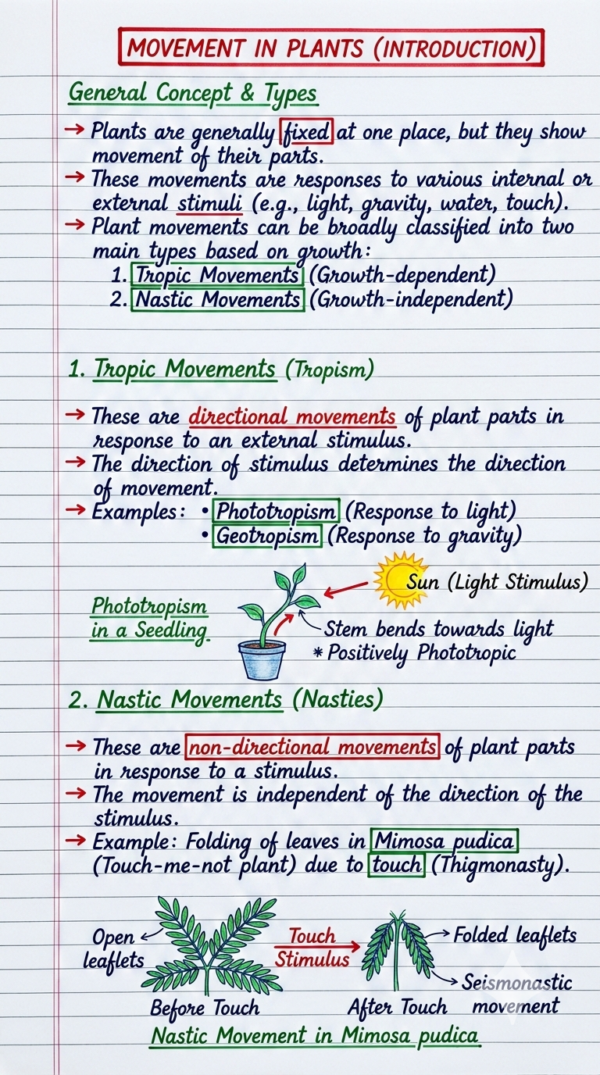 MOVEMENT IN PLANTS (INTRODUCTION)
General Concept & Types
→ Plants are generally fixed at one place, but they show
movement of their parts.
→ These movements are responses to various internal or
external stimuli (e.g., light, gravity, water, touch).
→ Plant movements can be broadly classified into two
main types based on growth:
1. Tropic Movements (Growth-dependent)
2. Nastic Movements (Growth-independent)
1. Tropic Movements (Tropism)
→ These are directional movements of plant parts in
response to an external stimulus.
→ The direction of stimulus determines the direction
of movement.
→ Examples: • Phototropism (Response to light)
• Geotropism (Response to gravity)
Sun (Light Stimulus)
Phototropism
in a Seedling
Stem bends towards light
* Positively Phototropic
2. Nastic Movements (Nasties)
→ These are non-directional movements of plant parts
in response to a stimulus.
→ The movement is independent of the direction of the
stimulus.
→ Example: Folding of leaves in Mimosa pudica
(Touch-me-not plant) due to touch (Thigmonasty).
Open
leaflets
Touch
Stimulus
Folded leaflets
Seismonastic
movement
Before Touch
After Touch
Nastic Movement in Mimosa pudica